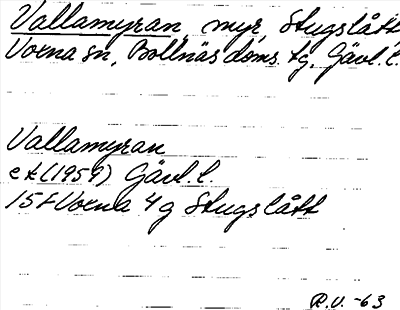 Vallamyran, myr, Stugslått
Voxna sn, Bollnäs doms. tg, Gävl. l.
Vallamyran
ek (1959) Gävl. l.
15F Voxna 4 g Stugslått
R.V. -63